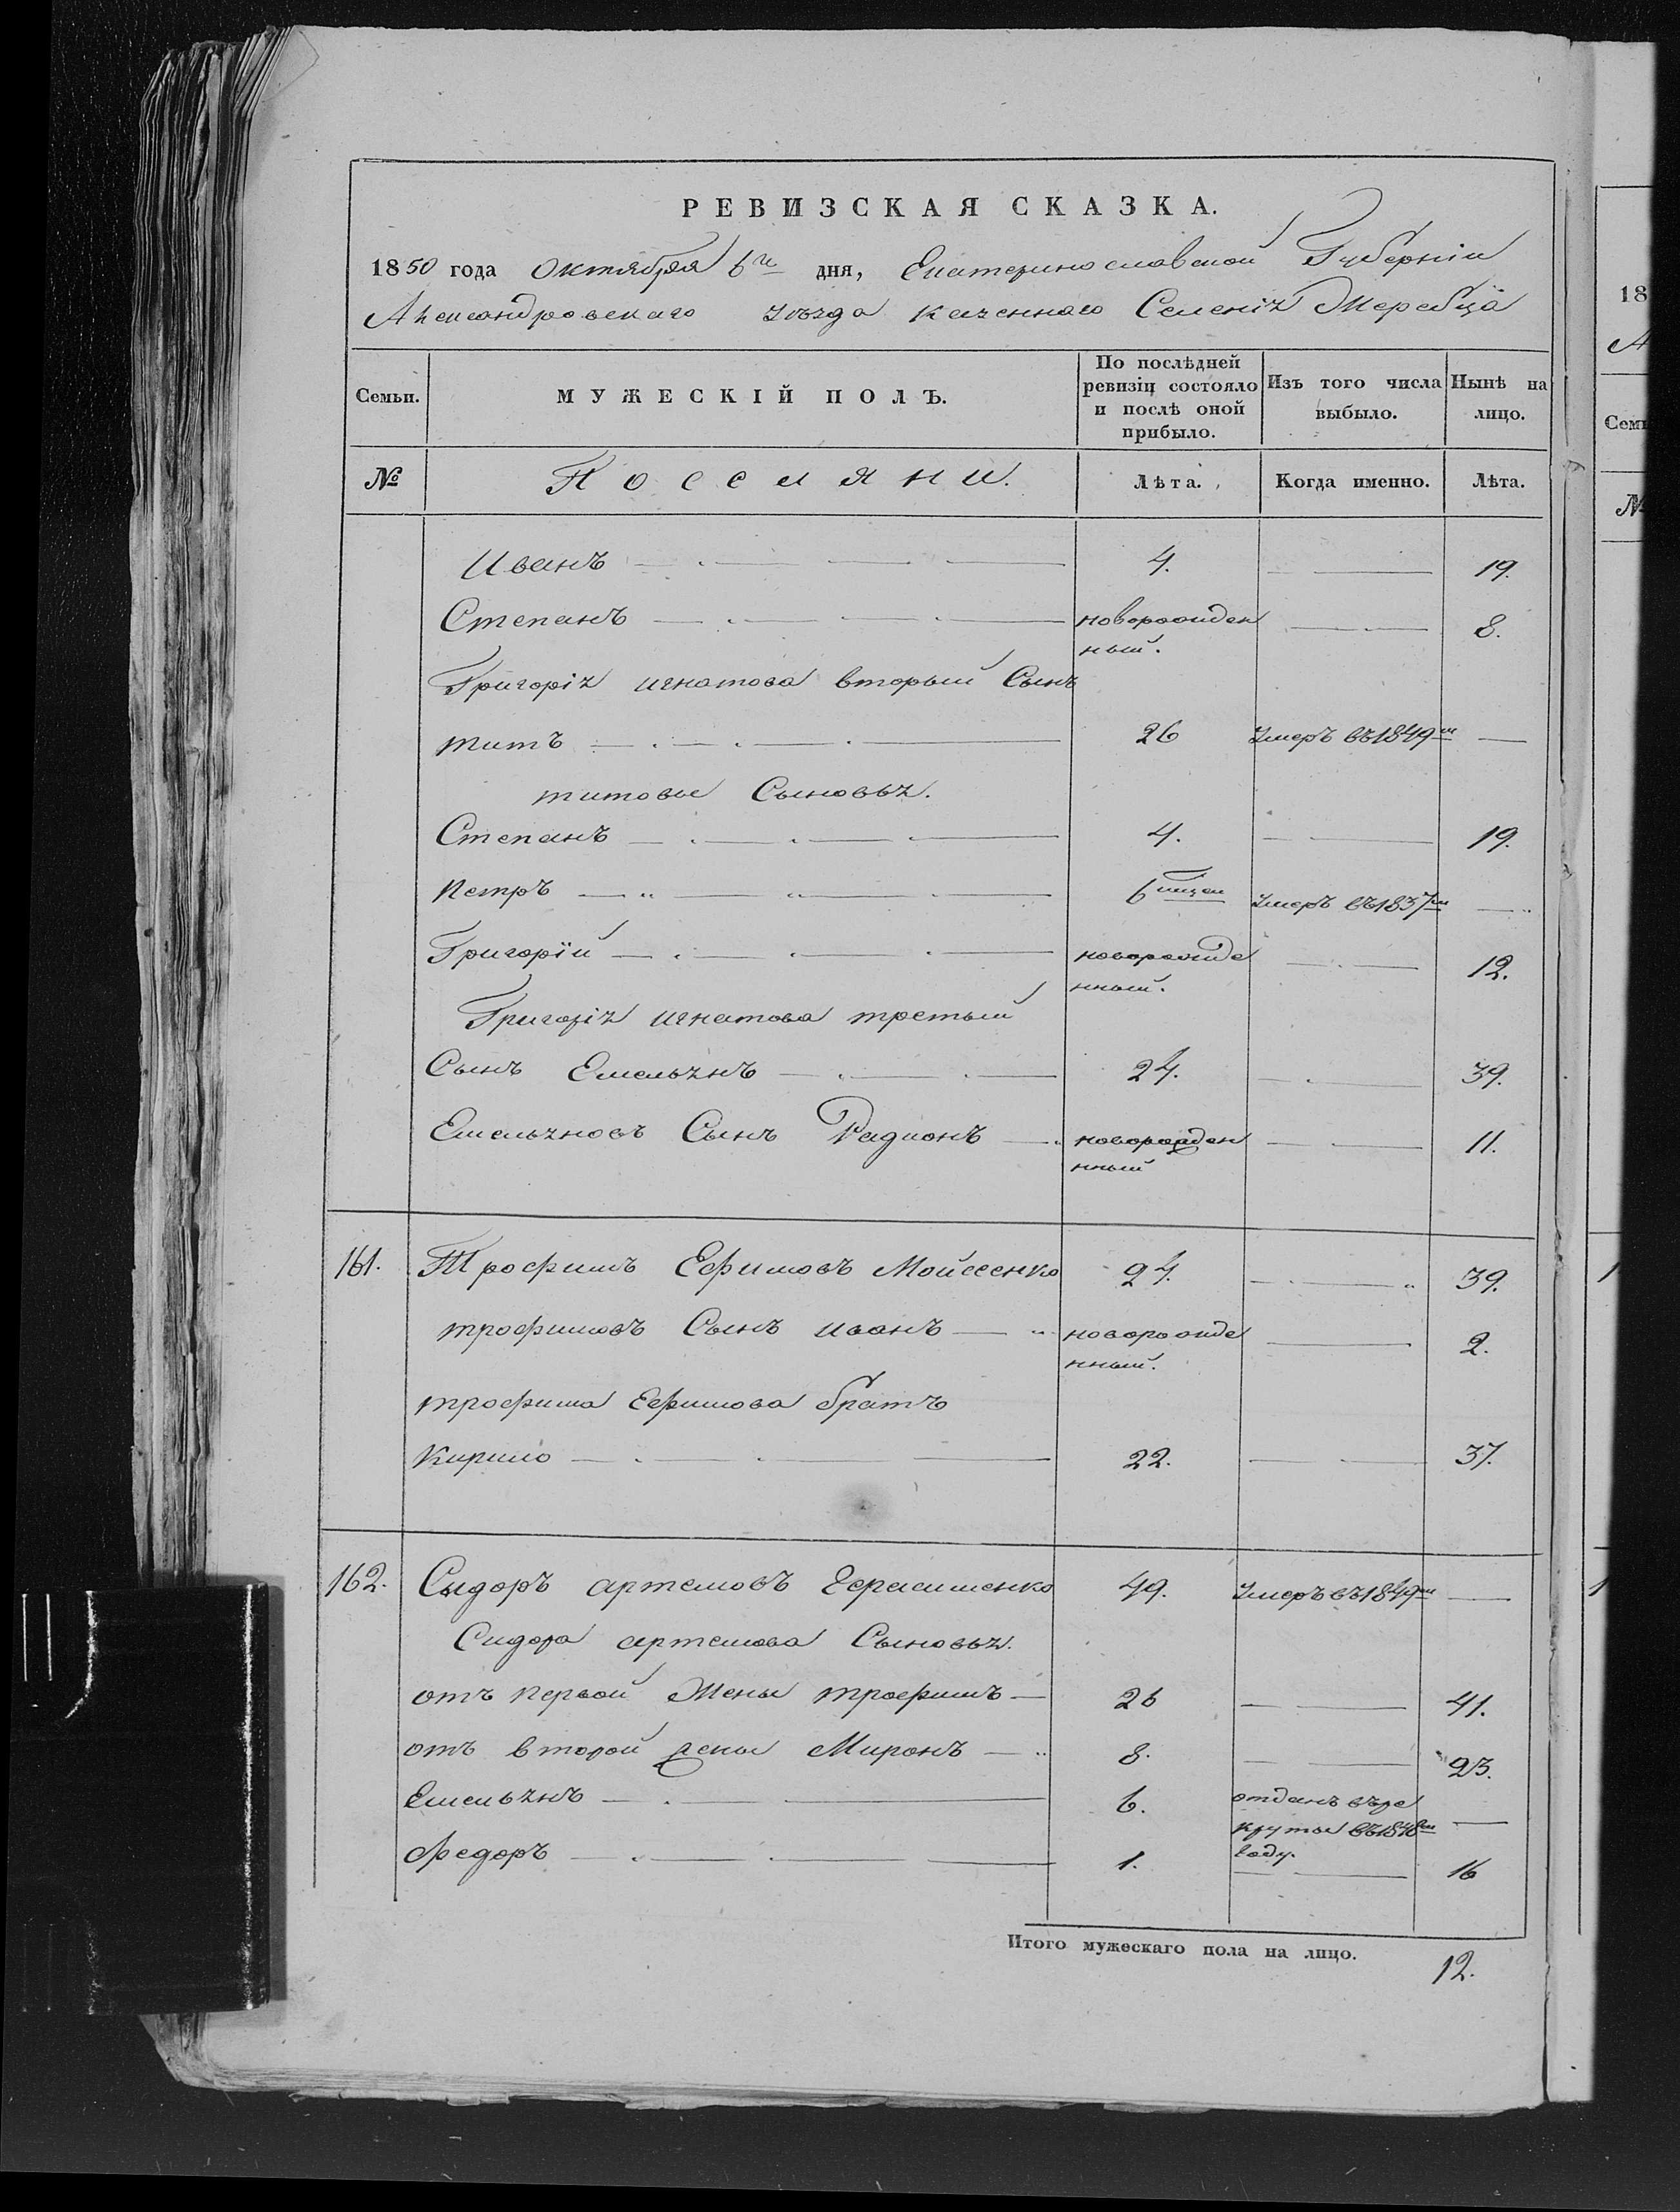 РЕВИЗСКАЯ СКАЗКА.
1850 года Октября 6го дня, Екатеринославской Губерніи
Александровскаго уѣзда казеннаго Селенія Жеребца
Семьи. МУЖЕСКІЙ ПОЛЪ. По послѣдней ревизіи состояло и послѣ оной прибыло. Изъ того числа выбыло. Нынѣ на лицо.
№ Поселяни. Лѣта. Когда именно. Лѣта.
Иванъ 4. 19.
Степанъ новорожден
ный. 8.
Григорія игнатова вторый Сынъ
титъ 26 Умеръ въ 1849м
титовы Сыновья.
Степанъ 4. 19.
петръ 6 мцеи Умеръ въ 1837м
Григорій новорожде
нный. 12.
Григорія игнатова третьий
Сынъ Емельянъ 24. 39.
Емельяновъ Сынъ Радионъ новорожден
нный 11.
161. Трофимъ Ефимовъ Мойсеенко 24. 39.
трофимовъ Сынъ иванъ новорожде
нный. 2.
трофима Ефимова братъ
Кирило 22. 37.
162. Сидоръ артемовъ Герасименко 49. Умеръ въ 1849м
Сидора артемова Сыновья.
отъ первой Жены трофимъ 26 41.
отъ второй жены Миронъ 8. 23.
Емельянъ 6. отданъ въ ре
круты въ 1848м
году.
Федоръ 1. 16
Итого мужескаго пола на лицо. 12.
18
А
Семь
№